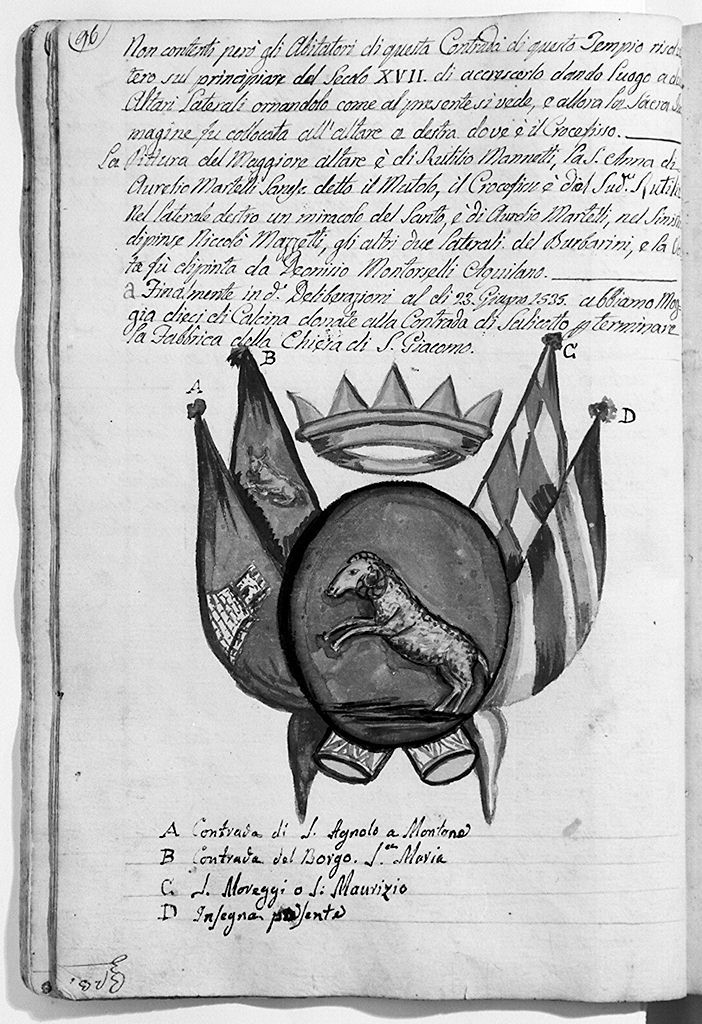 96
Non contenti però gli Abitatori di questa Contrada di questo Tempio risol
tero sul principiare del Secolo XVII. di accrescerlo dando luogo a du
Altari Laterali ornandolo come al presente si vede, e allora la Sacra Im
magine fu collocata all'altare a destra dove è il Crocefisso.
La Pittura del Maggiore altare è di Rutilio Mannetti, la S. Anna di
Aurelio Martelli Sanese detto il Mutolo, il Crocefisso è del Sud.º Rutilio
Nel laterale destro un miracolo del Santo, è di Aurelio Martelli, nel Sinis
dipinse Niccolò Mazzetti, gli altri due laterali del Burbarini, e la Vol
ta fù dipinta da Deonisio Montorselli Aquilano.
a Finalmente in d.º Deliberazioni al dì 23. Giugno 1535. abbiamo Mog
gia dieci di Calcina donate alla Contrada di Salicotto p terminare
la Fabbrica della Chiesa di S. Giacomo.
B C
A D
A Contrada di S. Agnolo a Montone
B Contrada del Borgo. S.ta Maria
C S. Moreggi o S: Maurizio
D Insegna presente